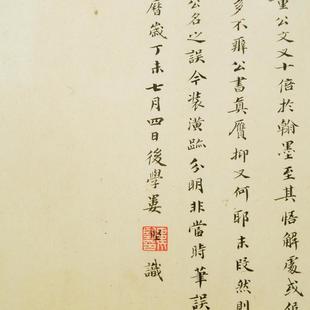 重公文又十倍於翰墨至其悟解處或
多不辨公書真贗抑又何耶末段然則
公名之誤今裝潢跡分明非當時筆誤
曆歲丁未七月四日後學婁堅識